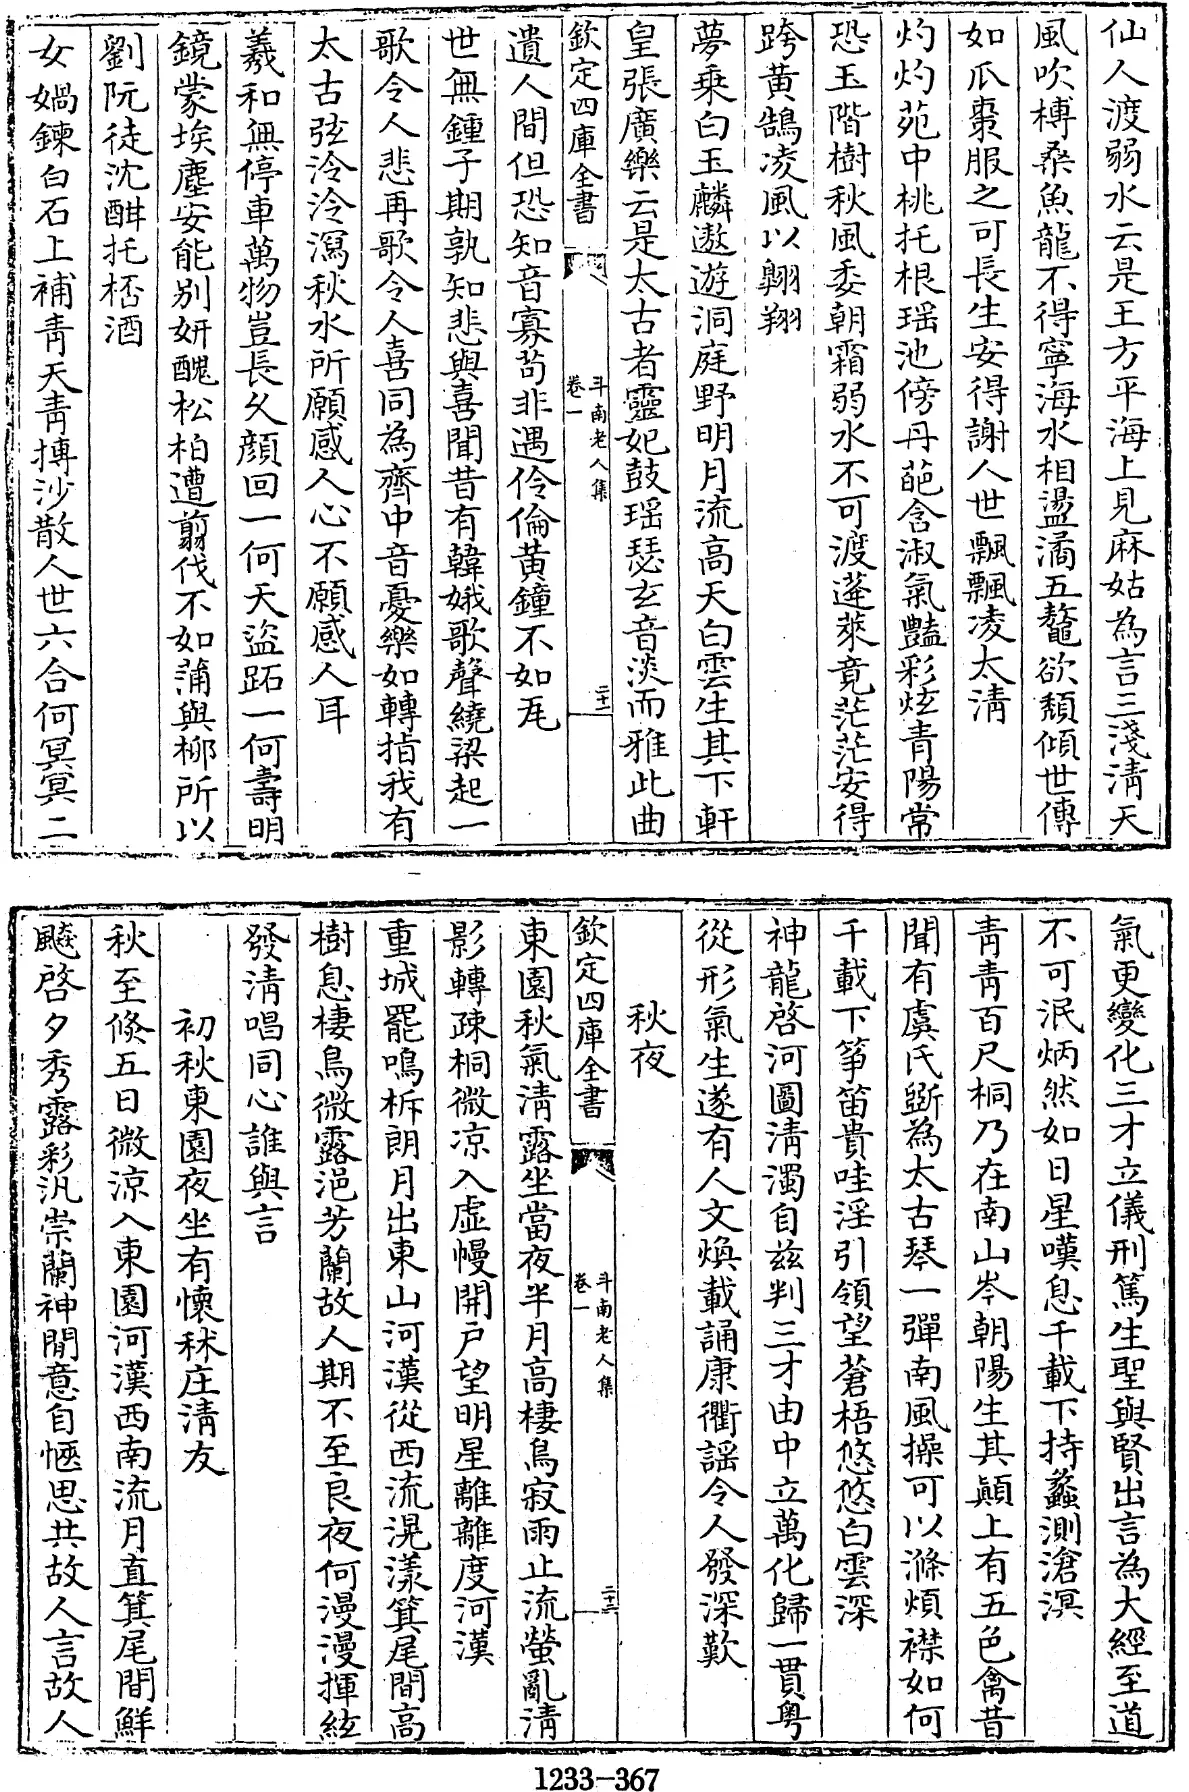 仙人渡弱水云是王方平海上見麻姑為言三淺清天
風吹榑桑魚龍不得寧海水相盪潏五鼇欲頽傾世傳
如瓜棗服之可長生安得謝人世飄飄凌太清
灼灼苑中桃托根瑶池傍丹葩含淑氣豔彩炫青陽常
恐玉階樹秋風委朝霜弱水不可渡蓬萊竟茫茫安得
跨黄鵠凌風以翺翔
夢乗白玉麟遨遊洞庭野明月流高天白雲生其下軒
皇張廣樂云是太古者靈妃鼓瑶瑟玄音淡而雅此曲
欽定四庫全書
斗南老人集
卷一
二十二
遺人間但恐知音寡茍非遇伶倫黄鐘不如瓦
世無鍾子期孰知悲與喜聞昔有韓娥歌聲繞梁起一
歌令人悲再歌令人喜同為齊中音憂樂如轉指我有
太古弦泠泠瀉秋水所願感人心不願感人耳
羲和無停車萬物豈長久顔回一何夭盜跖一何壽明
鏡蒙埃塵安能别妍醜松柏遭翦伐不如蒲與柳所以
劉阮徒沈酣托桮酒
女媧鍊白石上補青天青摶沙散人世六合何冥冥二
氣更變化三才立儀刑篤生聖與賢出言為大經至道
不可泯炳然如日星嘆息千載下持蠡測滄溟
青青百尺桐乃在南山岑朝陽生其顛上有五色禽昔
聞有虞氏斲為太古琴一彈南風操可以滌煩襟如何
千載下箏笛貴哇淫引領望蒼梧悠悠白雲深
神龍啓河圖清濁自兹判三才由中立萬化歸一貫粤
從形氣生遂有人文煥載誦康衢謡令人發深歎
秋夜
欽定四庫全書
斗南老人集
卷一
二十三
東園秋氣清露坐當夜半月高棲鳥寂雨止流螢亂清
影轉疎桐微凉入虚幔開户望明星離離度河漢
重城罷鳴柝朗月出東山河漢從西流滉漾箕尾間高
樹息棲鳥微露浥芳蘭故人期不至良夜何漫漫揮絃
發清唱同心誰與言
初秋東園夜坐有懷秝庄清友
秋至倐五日微涼入東園河漢西南流月直箕尾間鮮
飈啓夕秀露彩汎崇蘭神閒意自愜思共故人言故人
1233-367